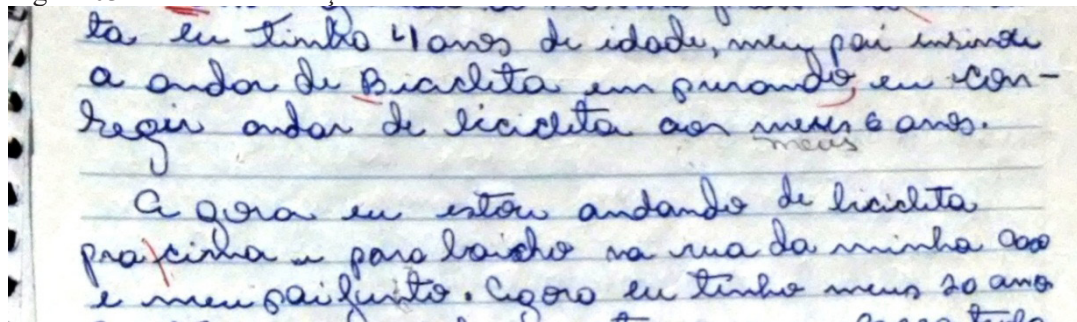 ta eu tinho 4 anos de idade, meu pai ensinou
a andar de Bicicleta em purando, eu con-
seguir andar de bicicleta aos meus 6 anos.
meus
A gora eu estou andando de bicicleta
pra cinha e para baicho na rua da minha casa
e meu pai junto. Agora eu tinho meus 20 ano